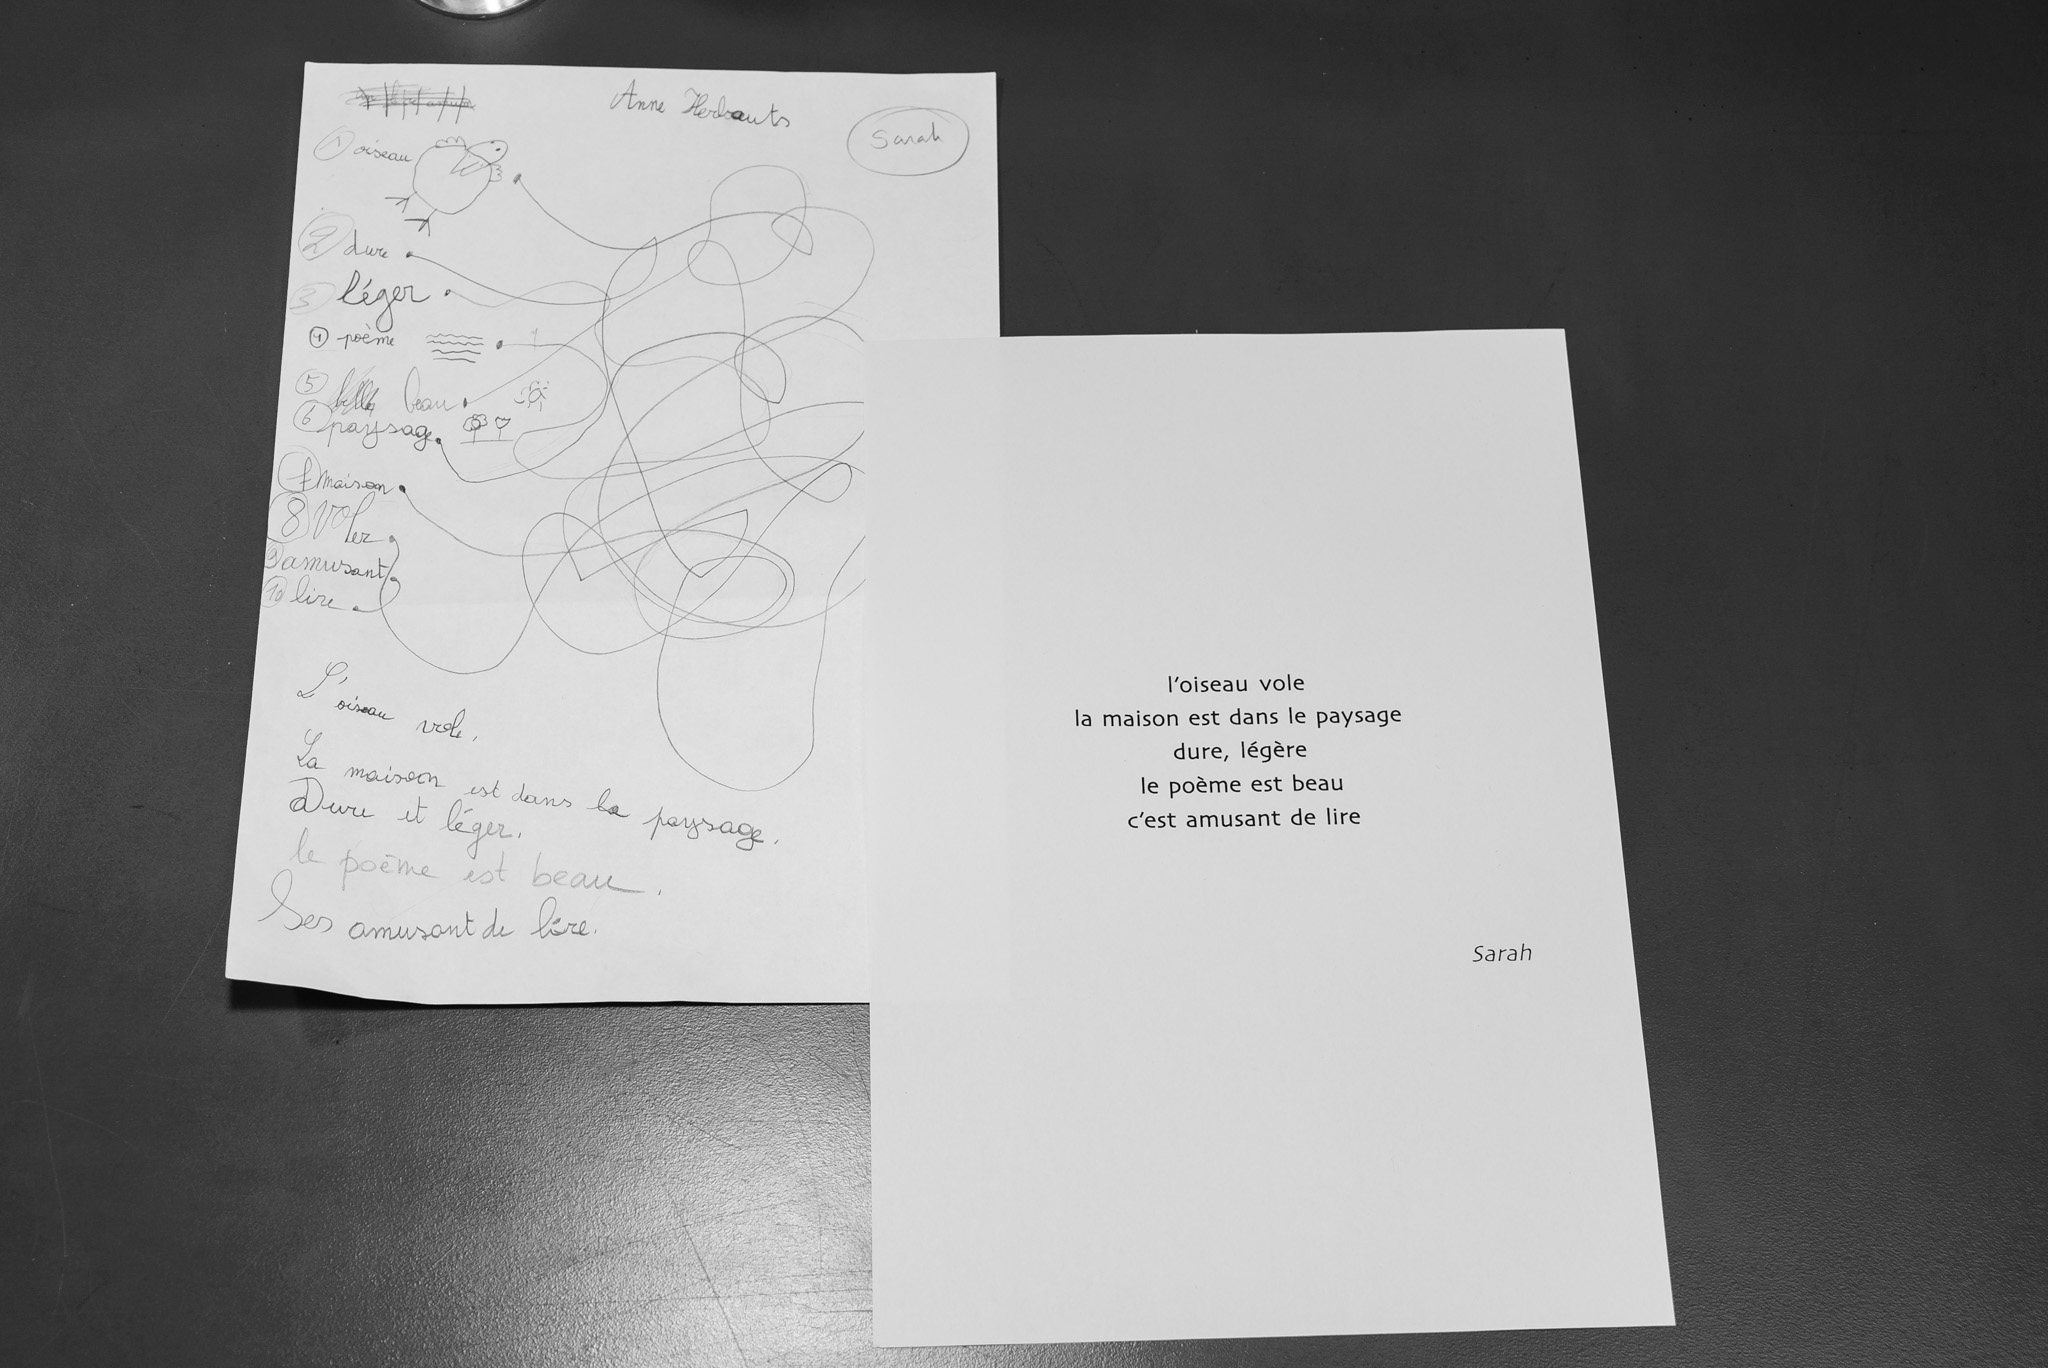 Anne Herbauts
Sarah
1 oiseau
2 dure
3 léger
4 poème
5 beau
6 paysage
7 maison
8 Voler
9 amusant
10 lire
L'oiseau vole.
La maison est dans la paysage.
Dure et léger.
le poème est beau.
Ses amusant de lire.
l'oiseau vole
la maison est dans le paysage
dure, légère
le poème est beau
c'est amusant de lire
Sarah